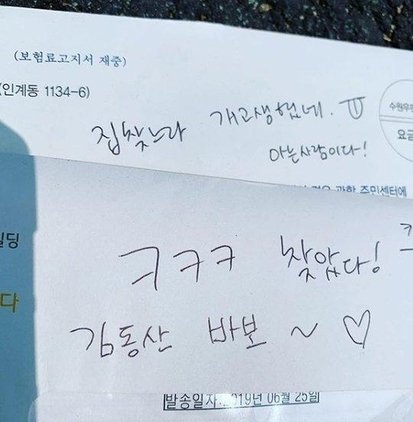 (보험료고지서 재중)
(인계동 1134-6)
집찾느라 개고생했네. ㅠ
아는사람이다!
요금
주민센터에
빌딩
ㅋㅋㅋ 찾았다!
다
김동산 바보 ~ ♡
발송일자:2019년 06월 25일